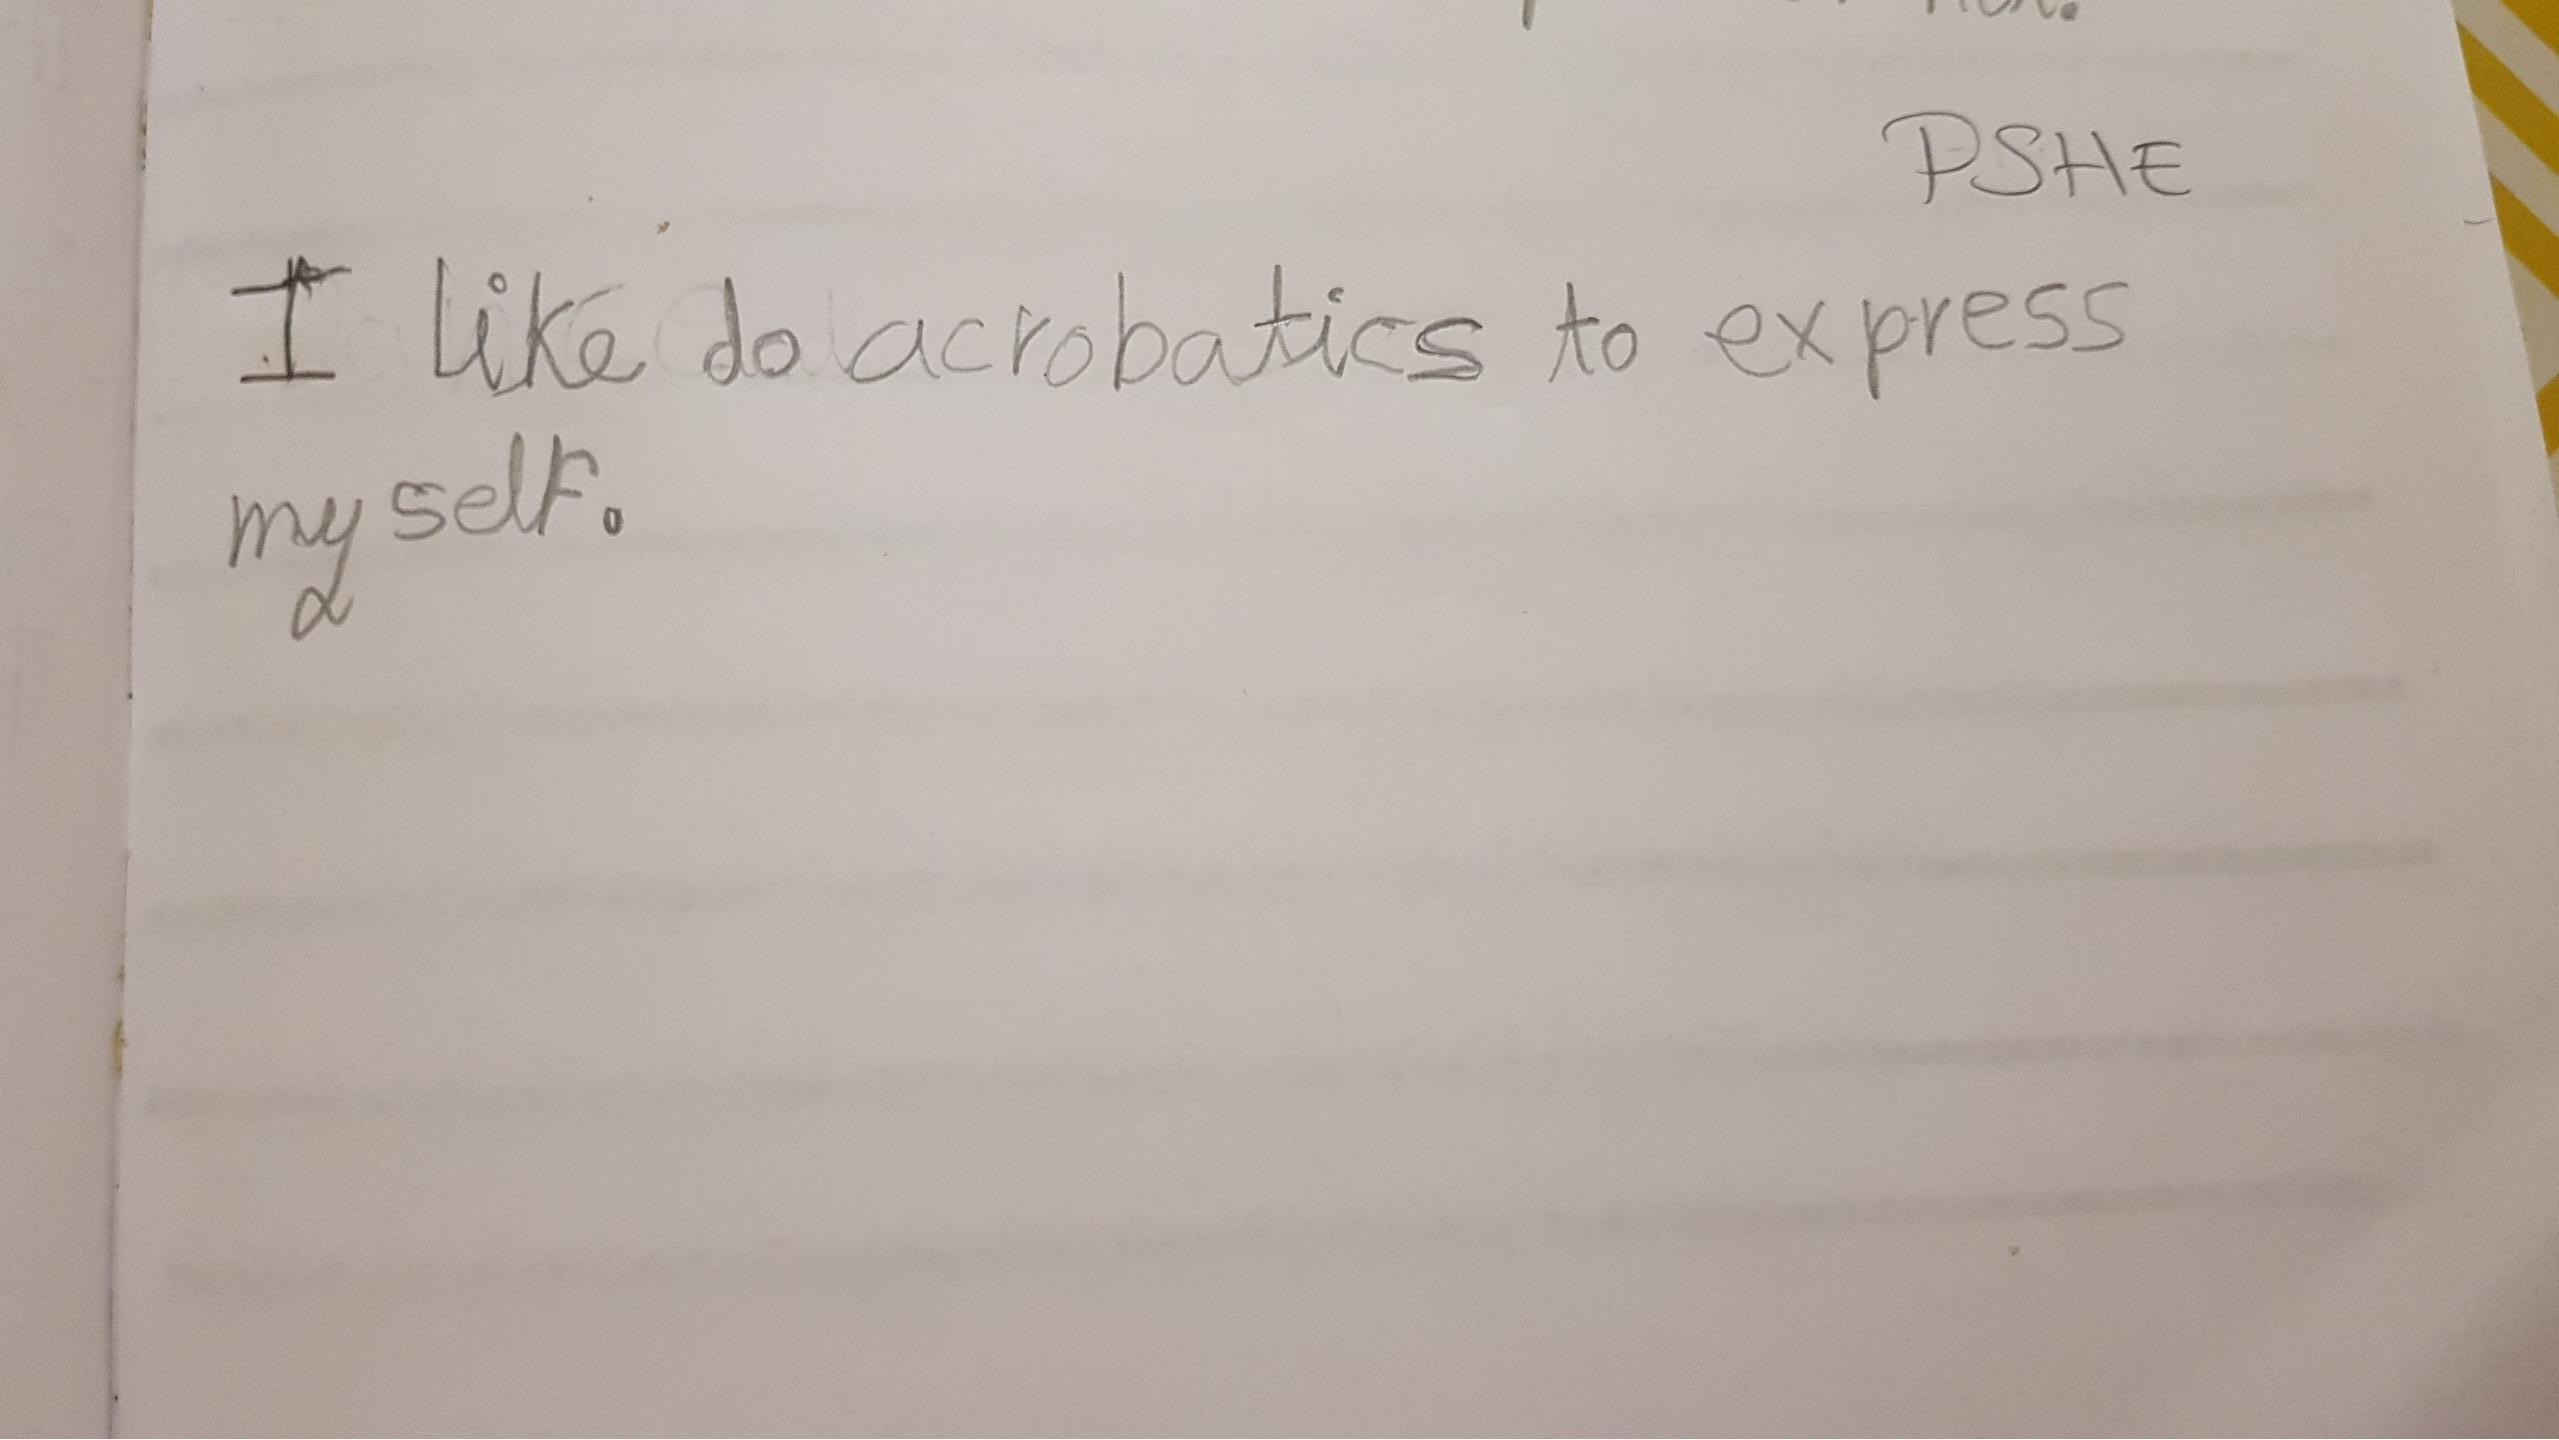 PSHE
I like do acrobatics to express
my self.